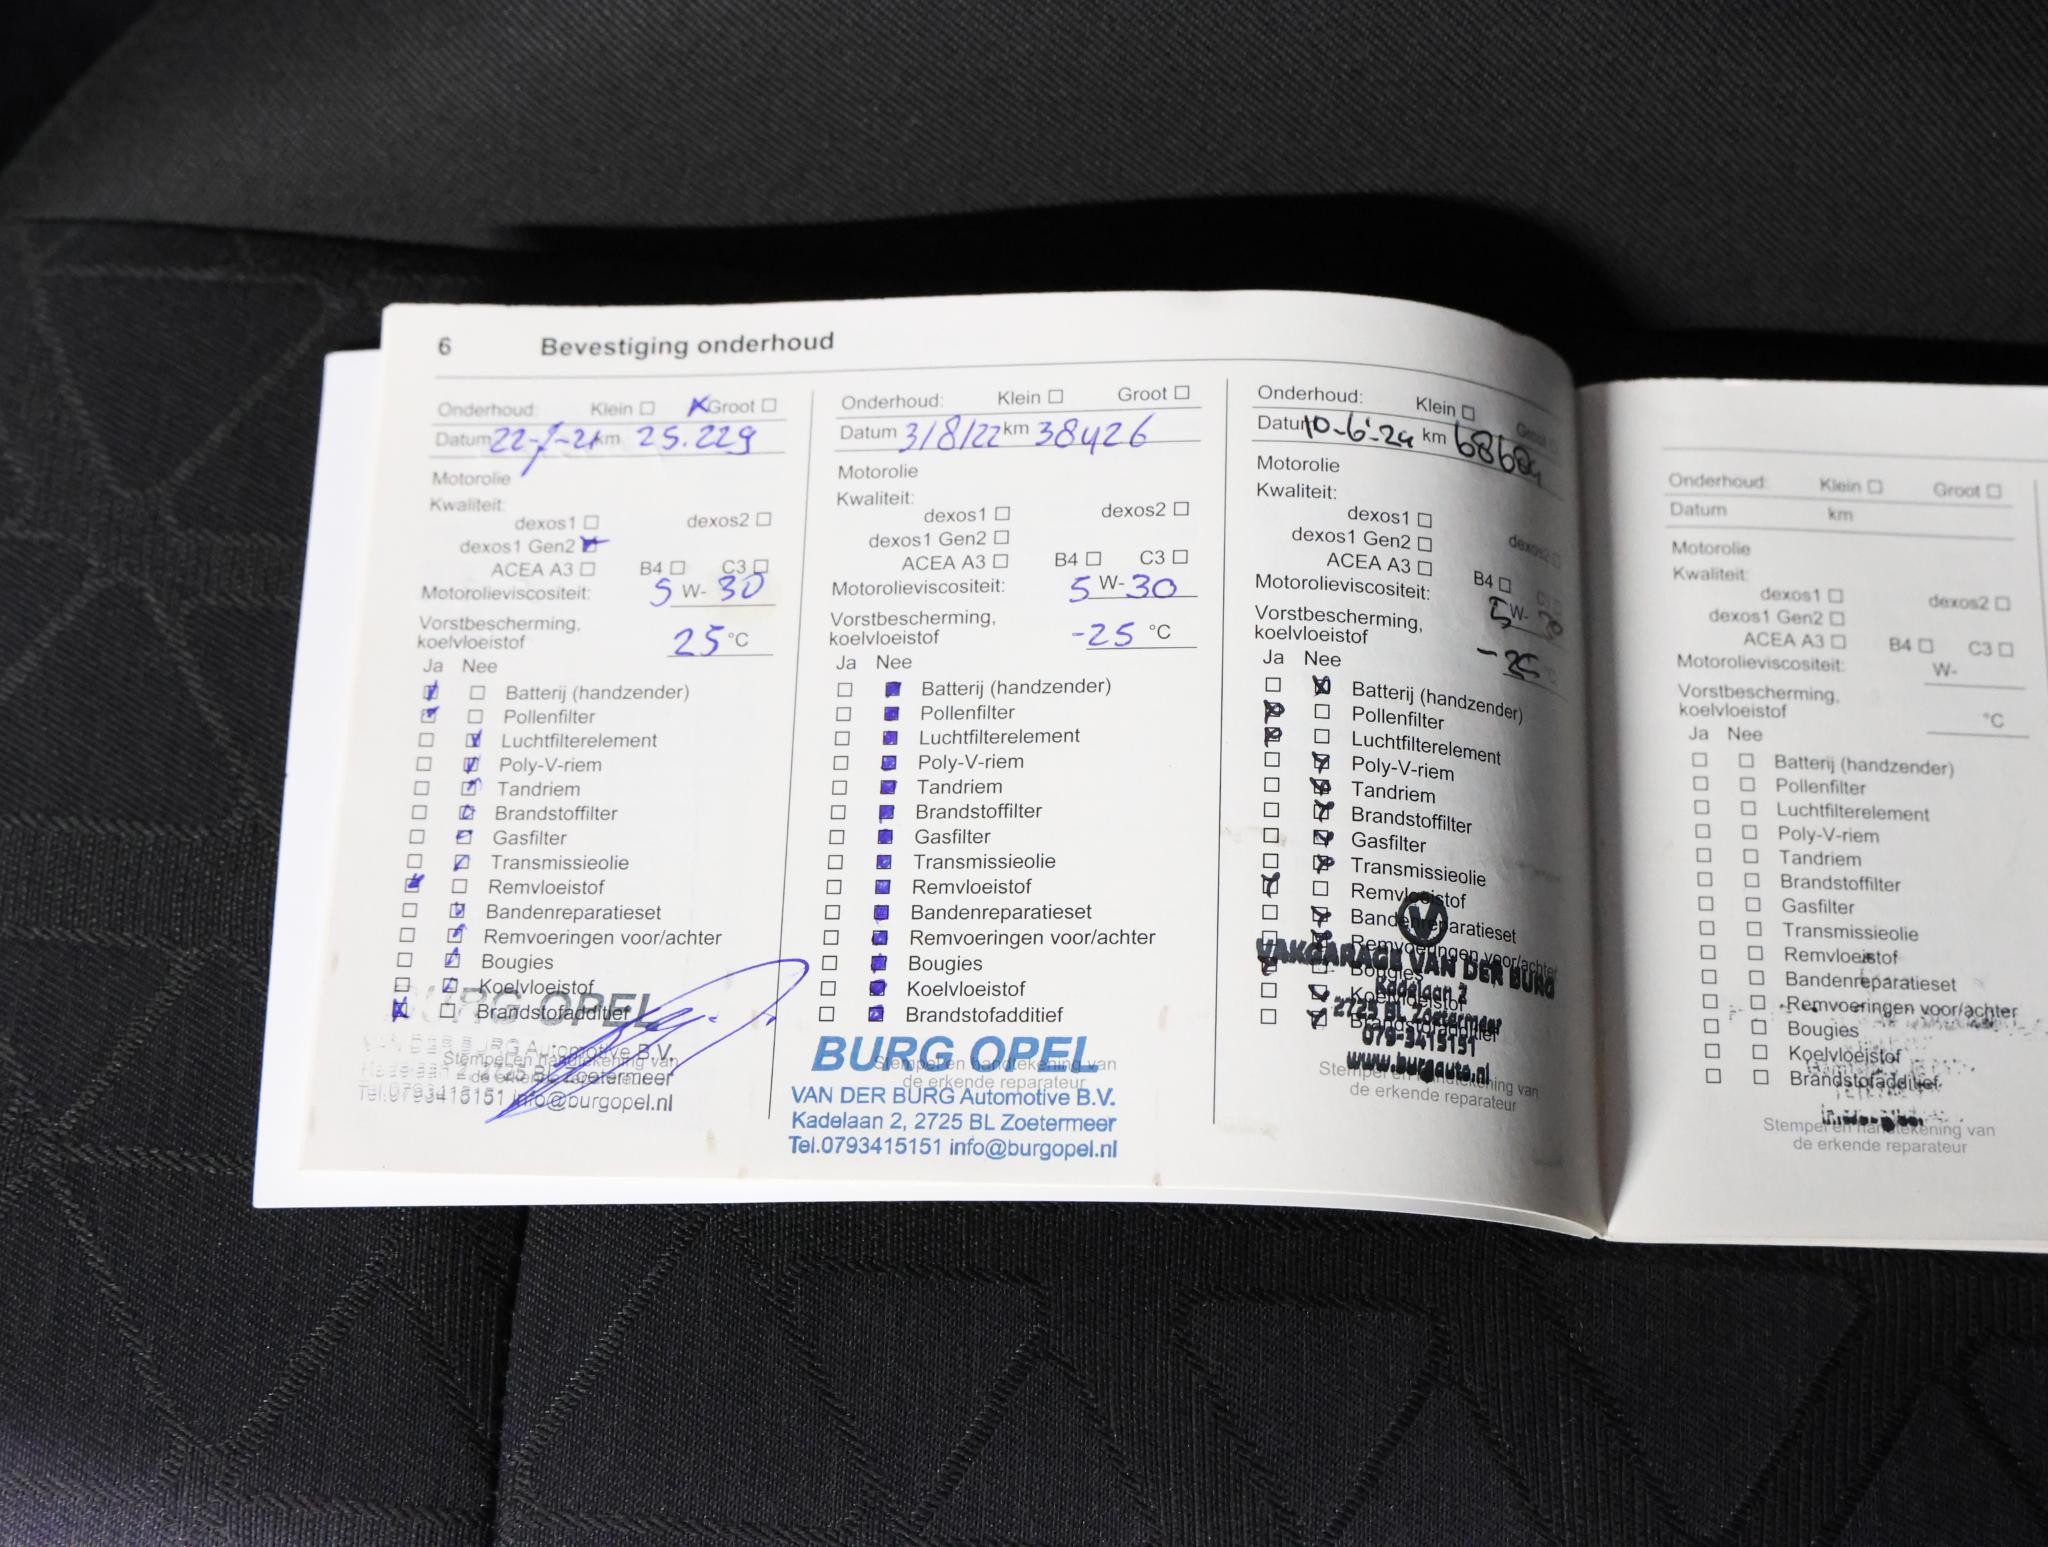 6 Bevestiging onderhoud
Onderhoud: Klein Groot
Datum 22-7-21 km 25.229
Motorolie
Kwaliteit:
dexos1 dexos2
dexos1 Gen2
ACEA A3 B4 C3
Motorolieviscositeit: 5 W- 30
Vorstbescherming,
koelvloeistof 25 °C
Ja Nee
Batterij (handzender)
Pollenfilter
Luchtfilterelement
Poly-V-riem
Tandriem
Brandstoffilter
Gasfilter
Transmissieolie
Remvloeistof
Bandenreparatieset
Remvoeringen voor/achter
Bougies
Koelvloeistof
Brandstofadditief
BURG OPEL
VAN DER BURG Automotive B.V.
Stempel en handtekening van
de erkende reparateur
Kadelaan 2, 2725 BL Zoetermeer
Tel.0793415151 info@burgopel.nl
Onderhoud: Klein Groot
Datum 3/8/22 km 38426
Motorolie
Kwaliteit:
dexos1 dexos2
dexos1 Gen2
ACEA A3 B4 C3
Motorolieviscositeit: 5 W- 30
Vorstbescherming,
koelvloeistof -25 °C
Ja Nee
Batterij (handzender)
Pollenfilter
Luchtfilterelement
Poly-V-riem
Tandriem
Brandstoffilter
Gasfilter
Transmissieolie
Remvloeistof
Bandenreparatieset
Remvoeringen voor/achter
Bougies
Koelvloeistof
Brandstofadditief
BURG OPEL
Stempel en handtekening van
de erkende reparateur
VAN DER BURG Automotive B.V.
Kadelaan 2, 2725 BL Zoetermeer
Tel.0793415151 info@burgopel.nl
Onderhoud: Klein Groot
Datum 10-6-24 km
Motorolie
Kwaliteit:
dexos1 dexos2
dexos1 Gen2
ACEA A3 B4 C3
Motorolieviscositeit: 5 W- 30
Vorstbescherming,
koelvloeistof -25 °C
Ja Nee
Batterij (handzender)
Pollenfilter
Luchtfilterelement
Poly-V-riem
Tandriem
Brandstoffilter
Gasfilter
Transmissieolie
Remvloeistof
Bandenreparatieset
Remvoeringen voor/achter
VAKGARAGE VAN DER BURG
Bougies
Kadelaan 2
Koelvloeistof
2725 BL Zoetermeer
Brandstofadditief
079-3415151
www.burgauto.nl
Stempel en handtekening van
de erkende reparateur
Onderhoud: Klein Groot
Datum km
Motorolie
Kwaliteit:
dexos1 dexos2
dexos1 Gen2
ACEA A3 B4 C3
Motorolieviscositeit: W-
Vorstbescherming,
koelvloeistof °C
Ja Nee
Batterij (handzender)
Pollenfilter
Luchtfilterelement
Poly-V-riem
Tandriem
Brandstoffilter
Gasfilter
Transmissieolie
Remvloeistof
Bandenreparatieset
Remvoeringen voor/achter
Bougies
Koelvloeistof
Brandstofadditief
Stempel en handtekening van
de erkende reparateur